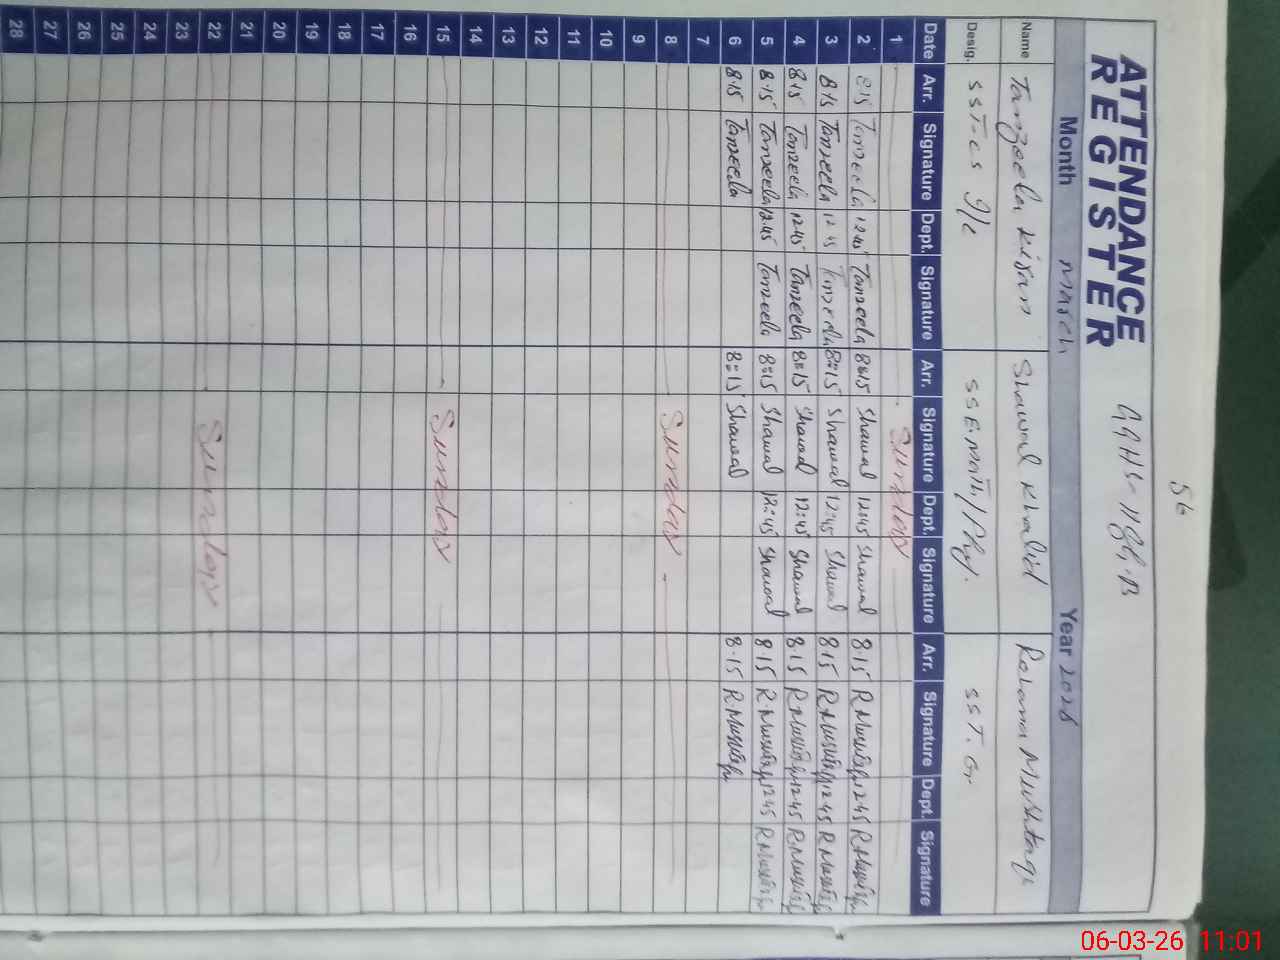 56
ATTENDANCE
REGISTER
GGHS- 118L.B
Month March Year 2026
Name Tanzeela Kiran Shawal Khalid Rehana Mushtaq
Desig. SST-CS I/C SSE.Math/Phy. SST. Gr
Date Arr. Signature Dept. Signature Arr. Signature Dept. Signature Arr. Signature Dept. Signature
1 Sunday
2 8:15 Tanzeela 12:45 Tanzeela 8:15 Shawal 12:45 Shawal 8.15 R.Mushtaq 12.45 R.Mushtaq
3 8:15 Tanzeela 12:45 Tanzeela 8:15 Shawal 12:45 Shawal 8.15 R.Mushtaq 12.45 R.Mushtaq
4 8:15 Tanzeela 12:45 Tanzeela 8:15 Shawal 12:45 Shawal 8.15 R.Mushtaq 12.45 R.Mushtaq
5 8:15 Tanzeela 12:45 Tanzeela 8:15 Shawal 12:45 Shawal 8.15 R.Mushtaq 12.45 R.Mushtaq
6 8:15 Tanzeela 8:15 Shawal 8.15 R.Mushtaq
7
8 Sunday
9
10
11
12
13
14
15 Sunday
16
17
18
19
20
21
22 Sunday
23
24
25
26
27
28
06-03-26 11:01